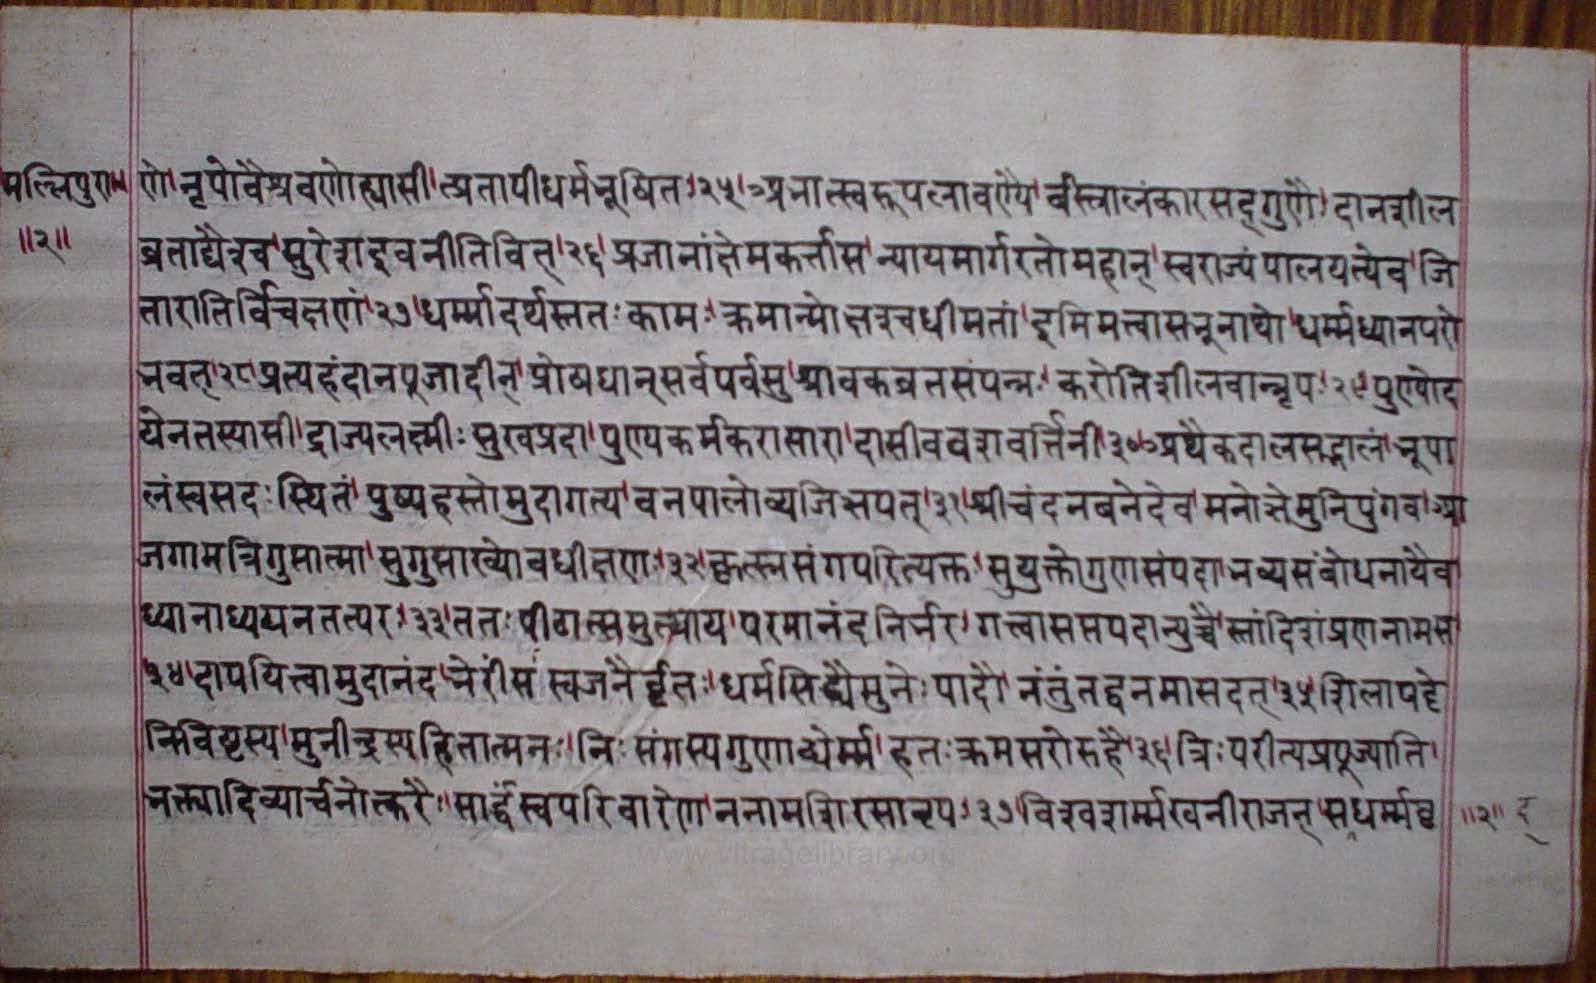 मल्लिपुरा॰
॥२॥
णे।नृपोवैश्रवणोह्यासी।त्प्रतापीधर्मभूषितः।२५।प्रभात्स्वरूपलावण्यै।र्वस्त्रालंकारसद्गुणैः।दानशील
व्रताद्यैश्च।सुरेशइवनीतिवित्।२६।प्रजानांक्षेमकर्त्तास।न्यायमार्गरतोमहान्।स्वराज्यंपालयत्येव।जि
तारातिर्विचक्षणः।२७।धर्म्मादर्थस्ततःकामः।क्रमान्मोक्षश्चधीमतां।इमिमत्त्वासभूनाथो।धर्म्मध्यानपरो
भवत्।२८।प्रत्यहंदानपूजादीन्।प्रोषधान्सर्वपर्वसु।श्रावकव्रतसंपन्नः।करोतिशीलवान्नृपः।२९।पुण्योद
येनतस्यासी।द्राज्यलक्ष्मीःसुखप्रदा।पुण्यकर्मकरासारा।दासीवववशवर्त्तिनी।३०।अथैकदालसद्भालं।भूपा
लंस्वसदःस्थितं।पुष्पहस्तोमुदागत्य।वनपालोव्यजिज्ञपत्।३१।श्रीचंदनबनेदेव।मनोज्ञेमुनिपुंगवः।आ
जगामत्रिगुप्तात्मा।सुगुप्ताख्योवधीक्षणः।३२।कृत्स्नसंगपरित्यक्तः।सुयुक्तोगुणसंपदा।भव्यसंबोधनायैव
ध्यानाध्ययनतत्परः।३३।ततःपीठात्समुत्थाय।परमानंदनिर्भरः।गत्वाससप्तपदान्युच्चै।स्तांदिशंप्रणनामसः
३४।दापयित्वामुदानंद।भेरींसस्वजनैर्वृतः।धर्मसिद्ध्यैमुनेःपादौ।नंतुंतद्वनमासदत्।३५।शिलापट्टे
निविष्टस्य।मुनीन्द्रस्यहितात्मनः।निःसंगस्यगुणाब्धेर्म्म।हतःक्रमसरोरुहै।३६।त्रिःपरीत्यप्रपूज्याति।
भक्त्यादिव्यार्चनोत्करैः।सार्द्धंस्वपरिवारेण।ननामशिरसानृपः।३७।विश्वशर्म्मखनीराजन्।सधर्म्मवृ
॥२॥ द्
www.vitragelibrary.org